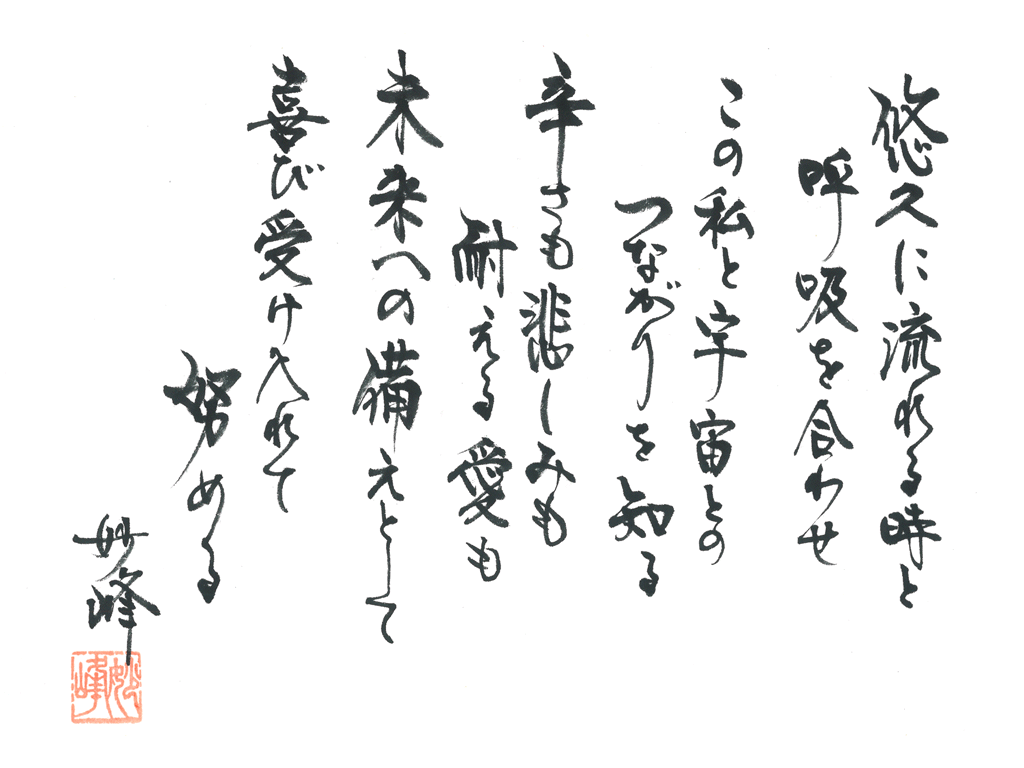 悠久に流れる時と
呼吸を合わせ
この私と宇宙との
つながりを知る
辛さも悲しみも
耐える愛も
未来への備えとして
喜び受け入れて
努める
妙峰
妙峰